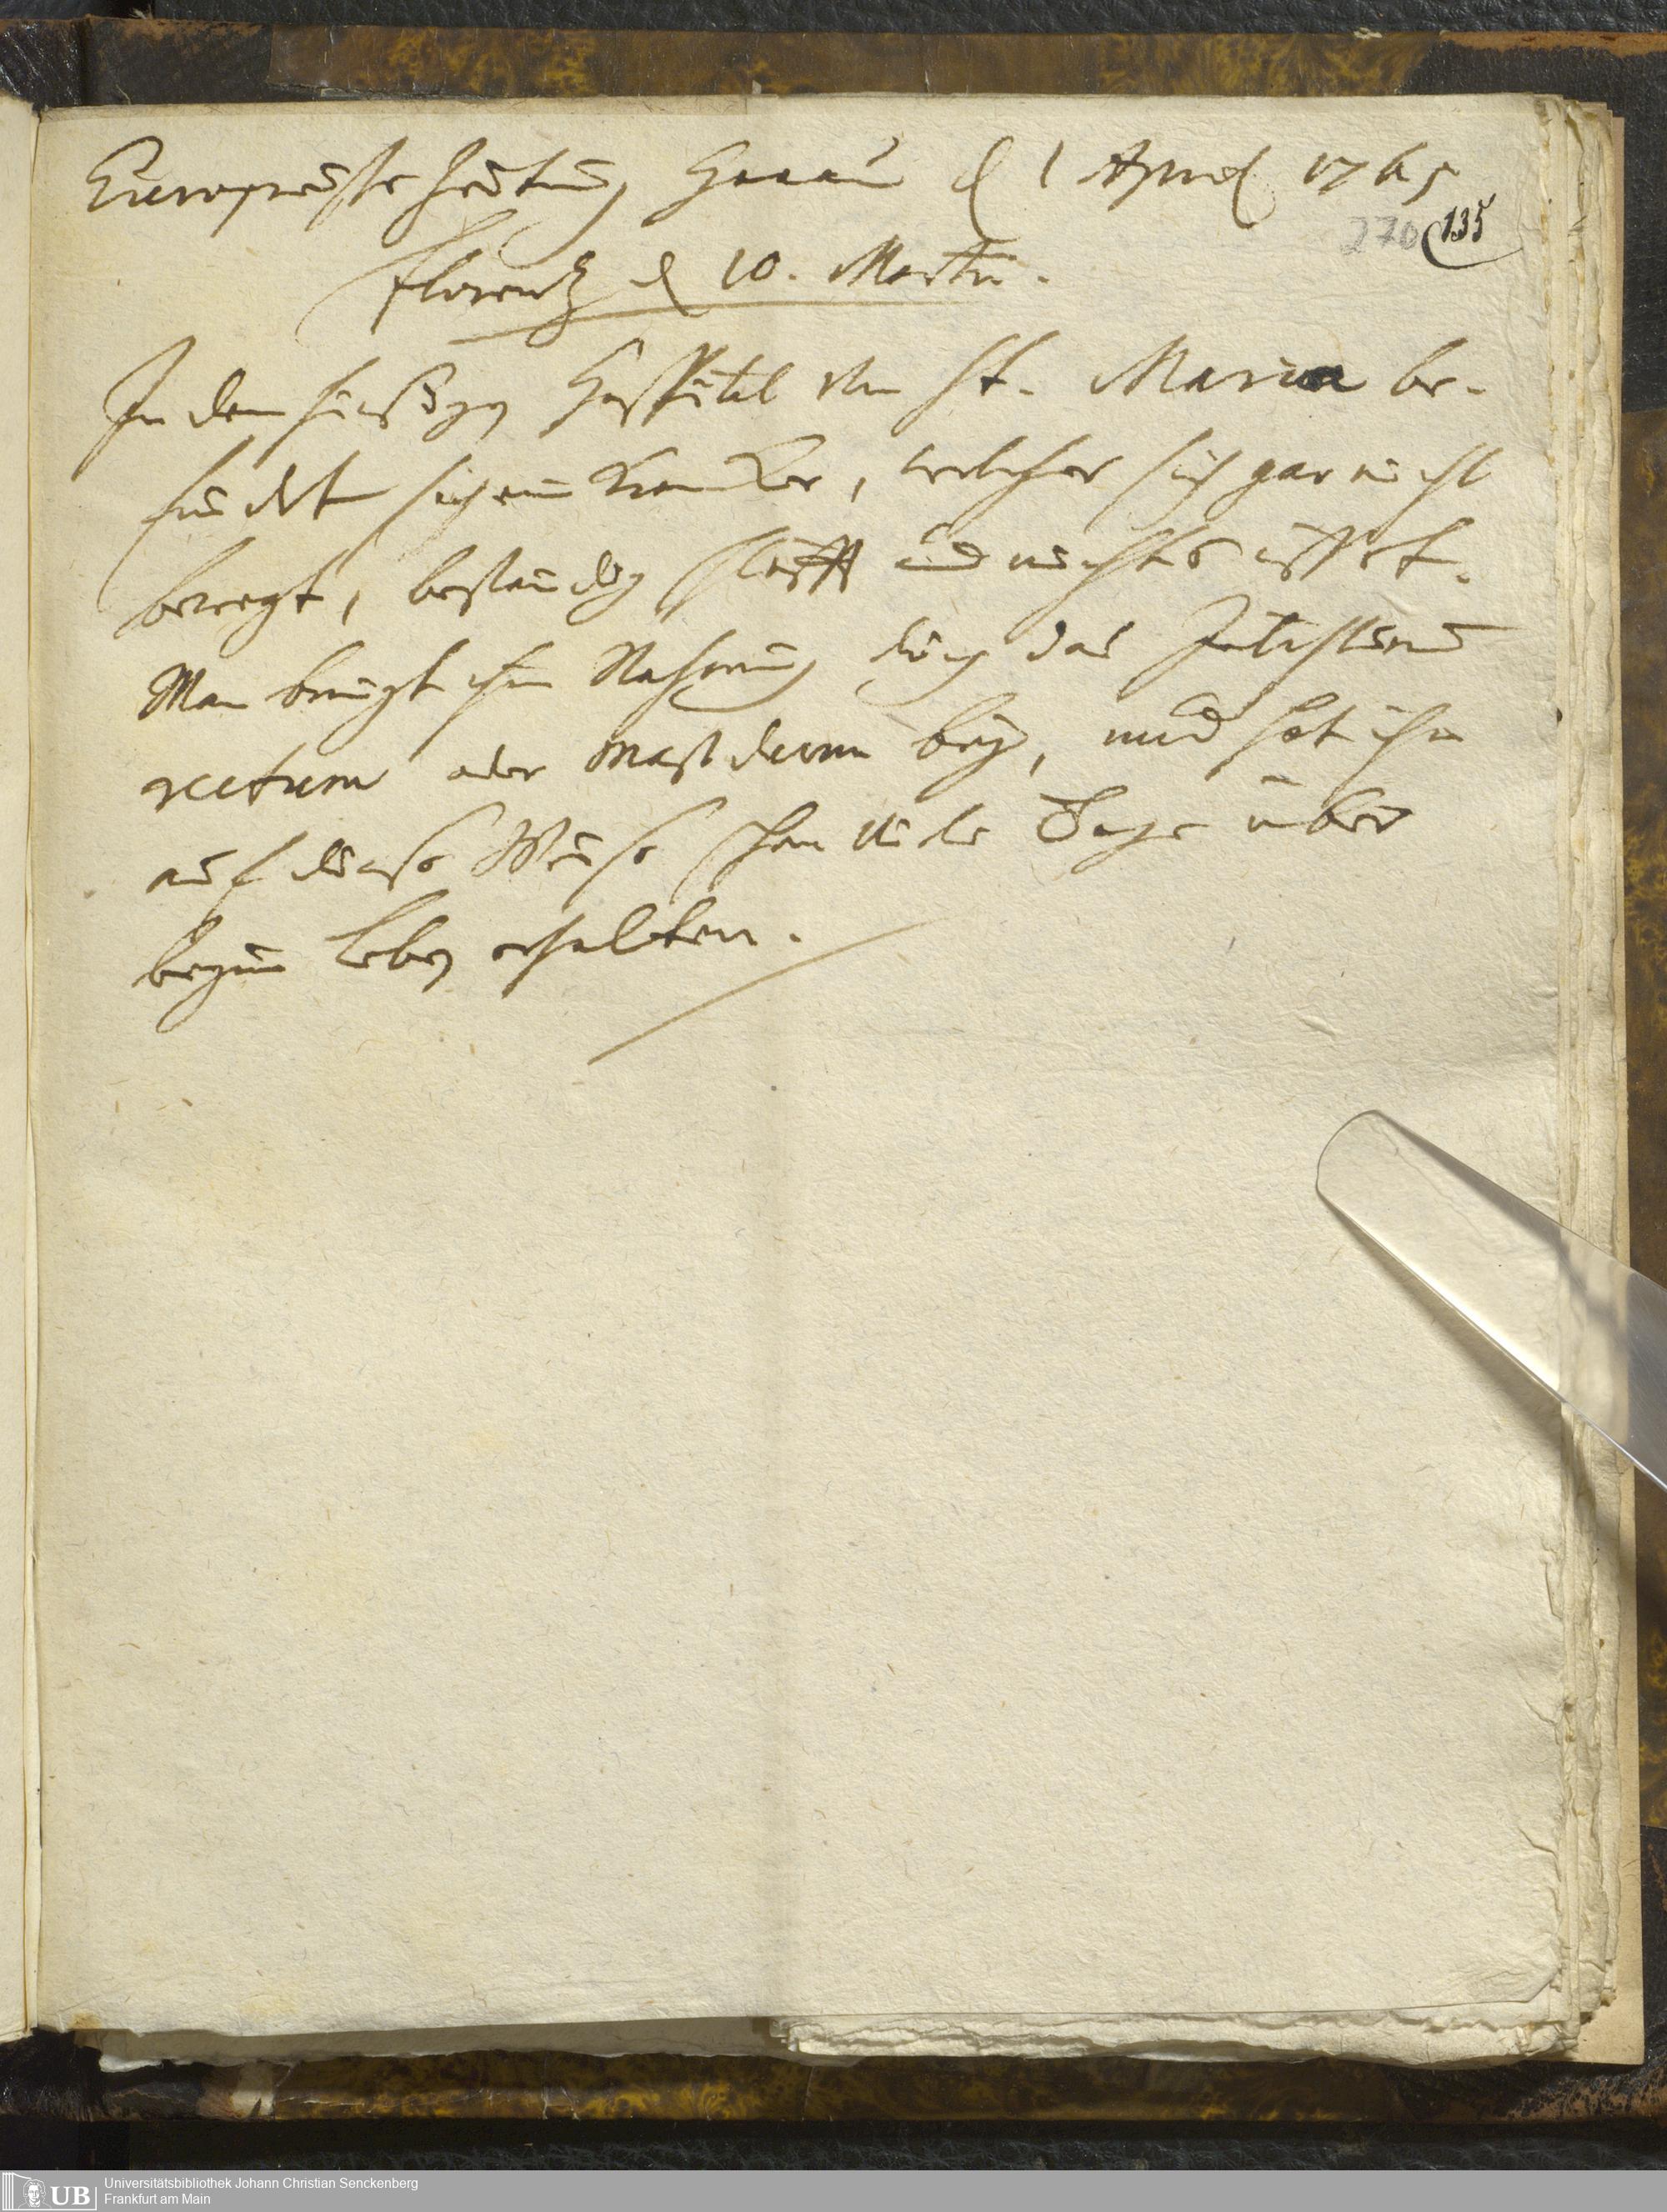 Europeische Zeitung Hanau d 1 April 1765
270 135
Florentz d 10. Martii.
In dem hiesigen Hospital von St. Maria be-
findet sich ein Kranker, welcher sich gar nicht
bewegt, beständig schläfft und nichts isset.
Man bringt ihm Nahrung durch das Intestinum
rectum oder Mastdarm bey, und hat ihn
auf diese Weise schon viele Tage über
beym Leben erhalten.
UB Universitätsbibliothek Johann Christian Senckenberg
Frankfurt am Main